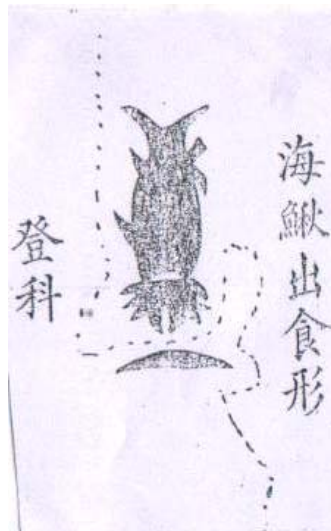 海鰍出食形
登科